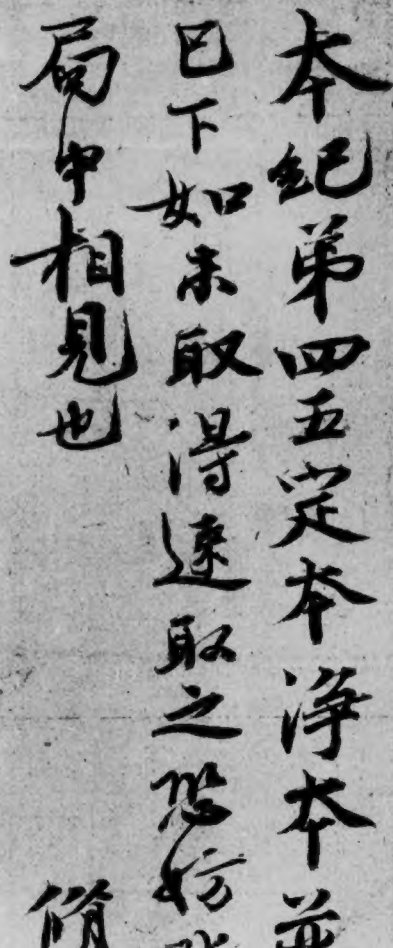 本紀第四五定本淨本並
已下如未取得速取之恐妨
局中相見也 脩